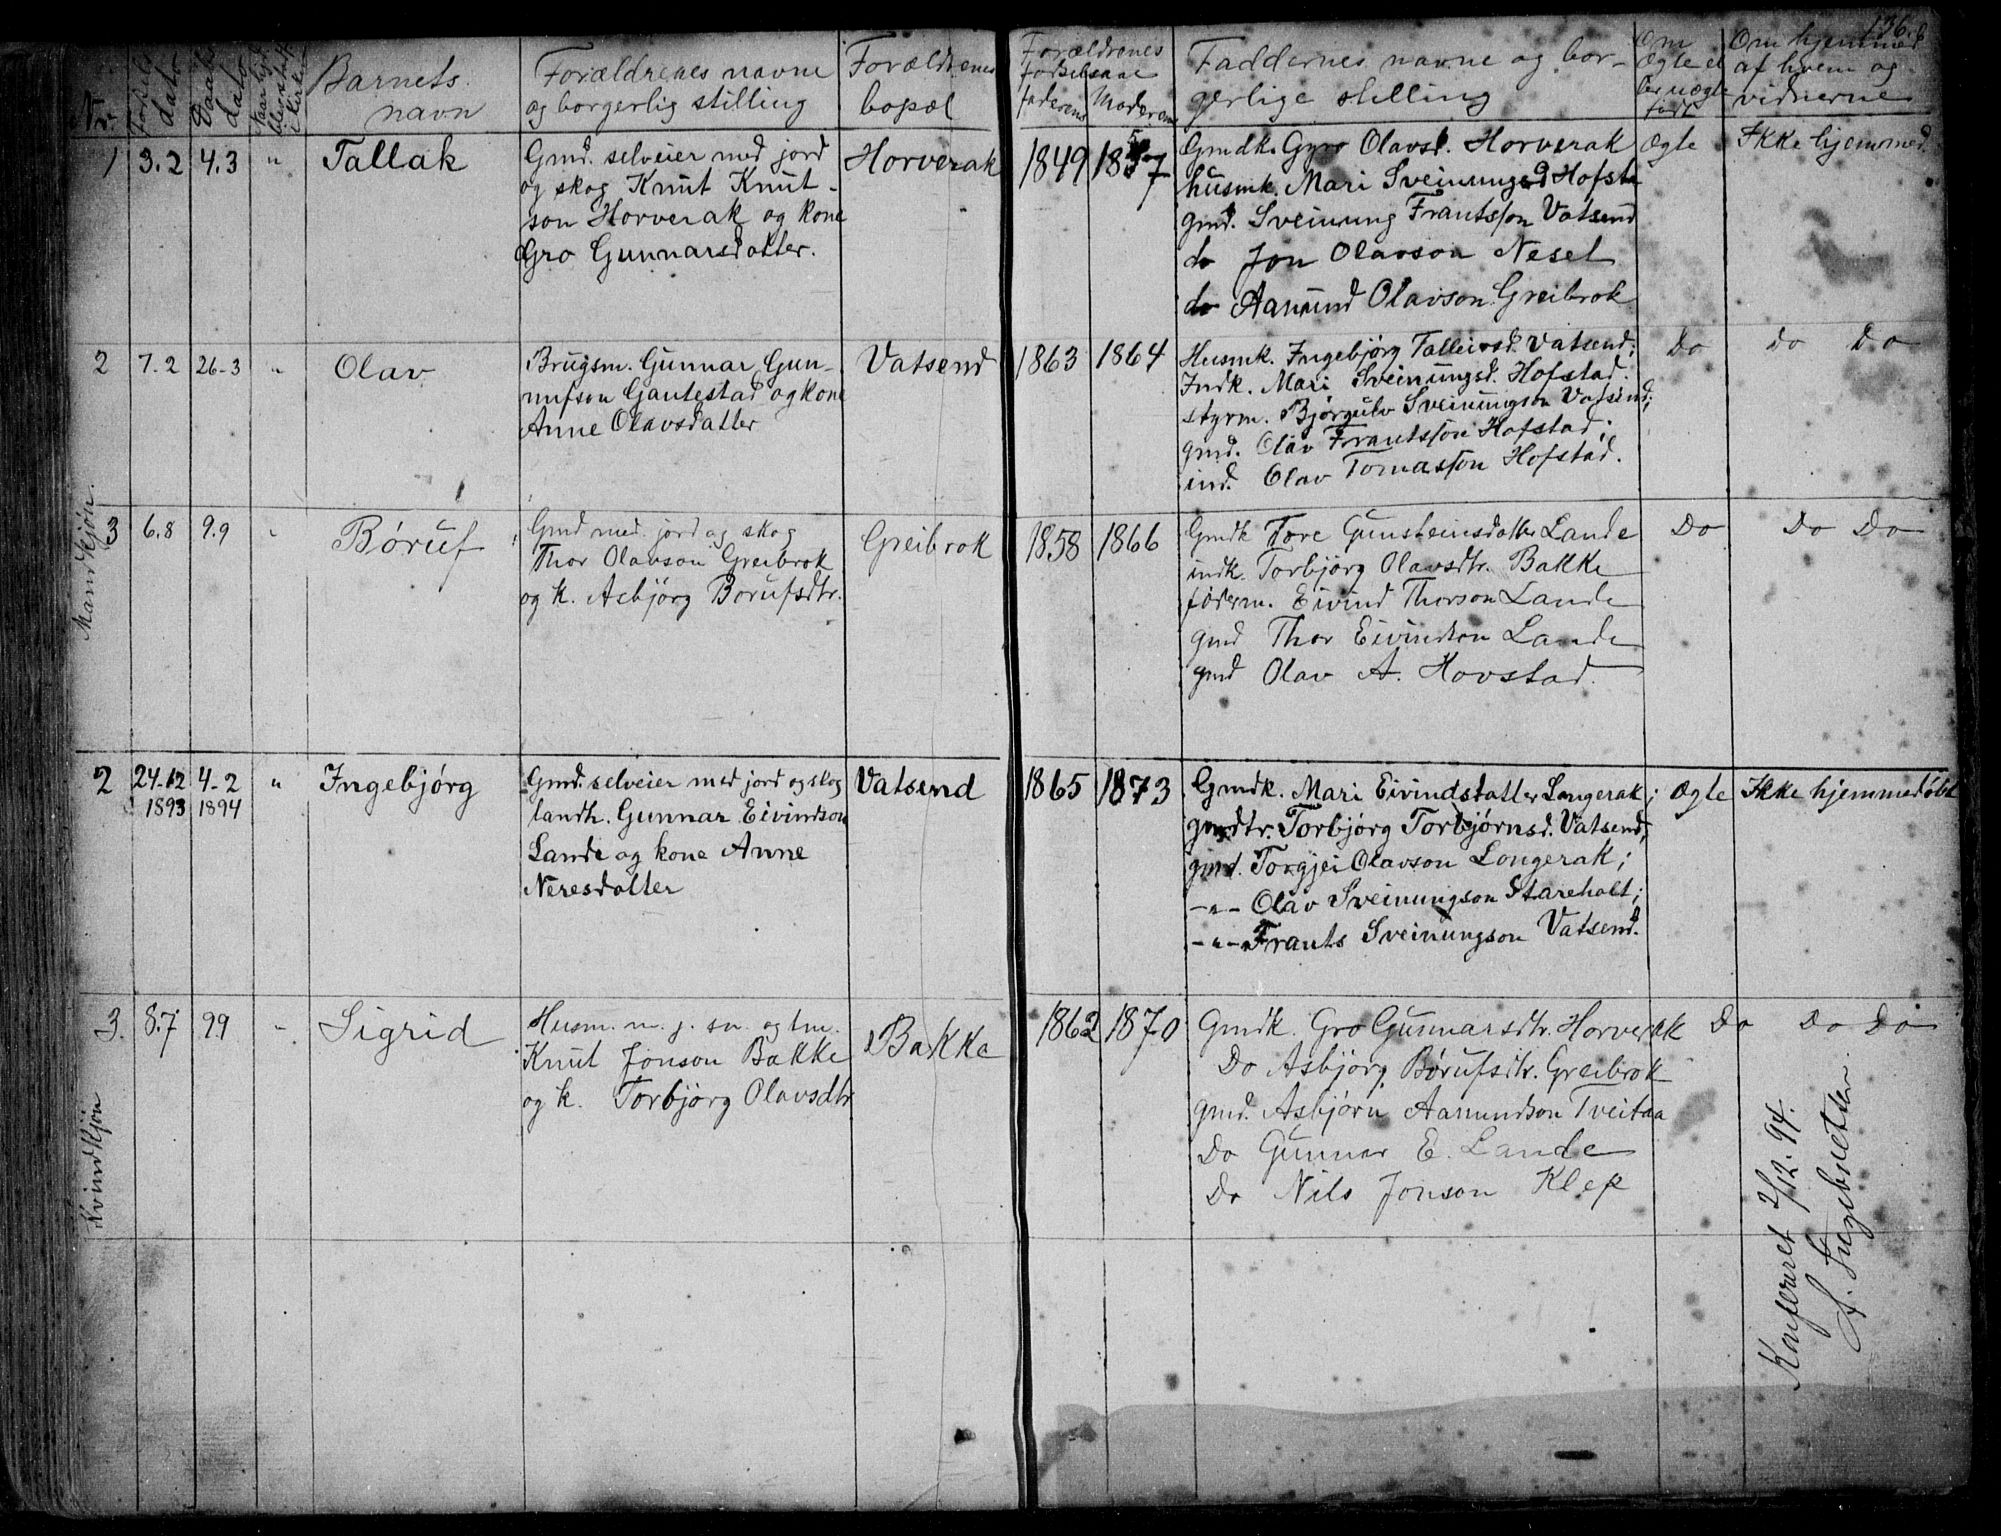 136.
Nr.
Fødsels dato
Daabs dato
Barnets navn
Forældrenes navne
og borgerlig stilling
Forældrenes
bopæl
Forældrenes
fødselsaar
faderens
Moderens
Faddernes navne og bor-
gerlige stilling
Om
Ægte el
ler uægte
født
Om hjemmed
af hvem og
vidnerne
Mandkjøn.
1 3.2 4.3 " Tallak
Gmd. selveier med jord
og skog Knut Knut-
son Horverak og kone
Gro Gunnarsdatter.
Horverak
1849 1857
Gmdk. Gyro Olavsd. Horverak
husmk. Mari Sveinungsd Hofsta
gmd. Sveinung Frantsson Vatsend
do Jon Olavson Neset
do Aamund Olavson Greibrok
Ægte
Ikke hjemmed.
2 7.2 26-3 " Olav
Brugsm. Gunnar Gun-
nufson Gautestad og kone
Anne Olavsdatter
Vatsend
1863 1864
Husmk. Ingebjørg Talleivsd. Vatsend;
Indk. Mari Sveinungsd. Hofstad.
styrm. Bjørgulv Sveinungson Vatsend;
gmd. Olav Frantsson Hofstad;
ind. Olav Tomasson Hofstad.
Do
Do Do
3 6.8 9.9 " Børuf
Gmd med jord og skog
Thor Olavson Greibrok
og k. Asbjørg Børufsdtr.
Greibrok
1858 1866
Gmdk Tore Gunsteinsdatter Lande
indk. Torbjørg Olavsdtr. Bakke
føderm. Eivind Thorson Lande
gmd Thor Eivindson Lande
gmd Olav A. Hovstad.
Do
Do Do
Kvindkjøn
2 24-12 1893 4-2 1894 " Ingebjørg
Gmd. selveier med jord og skog
landh. Gunnar Eivindson
Lande og kone Anne
Neresdatter
Vatsend
1865 1873
Gmdk. Mari Eivindsdatter Longerak;
gmdtr. Torbjørg Torbjørnsd. Vatsend;
gmd. Torgjei Olavson Longerak;
-"- Olav Sveinungson Stareholt;
-"- Frants Sveinungson Vatsend.
Ægte
Ikke hjemmedøbt
3. 8.7 9.9 " Sigrid
Husm. m. j. sn. og tm.
Knut Jonson Bakke
og k. Torbjørg Olavsdtr
Bakke
1862 1870
Gmdk. Gro Gunnarsdtr. Horverak
Do Asbjørg Børufsdtr. Greibrok
gmd. Asbjørn Aamundson Tveitaa
Do Gunnar E. Lande
Do Nils Jonson Klep
Do
Do Do
Konfereret 2/12. 94.
Ingebretsen